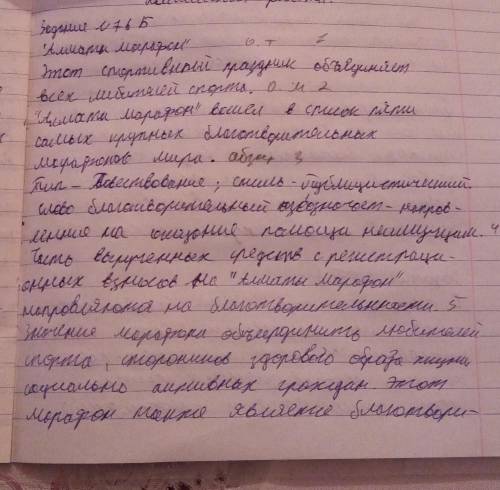 Задние №76 Б
"Алматы марафон" о. т 1
Этот спортивный праздник объединяет
всех любителей спорта. О м 2
"Алматы марафон" вошел в список пяти
самых крупных благотворительных
марафонов мира. абзац 3
Тип - Повествование; стиль - публицистический.
слово благотворительный означает - направ-
ление на оказание помощи неимущим. 4
Часть вырученных средств с регистраци-
онных взносов на "Алматы марафон"
направляются на благотворительности. 5
Значение марафона объединить любителей
спорта, сторонников здорового образа жизни
социально активных граждан Этот
марафон также является благотвори-